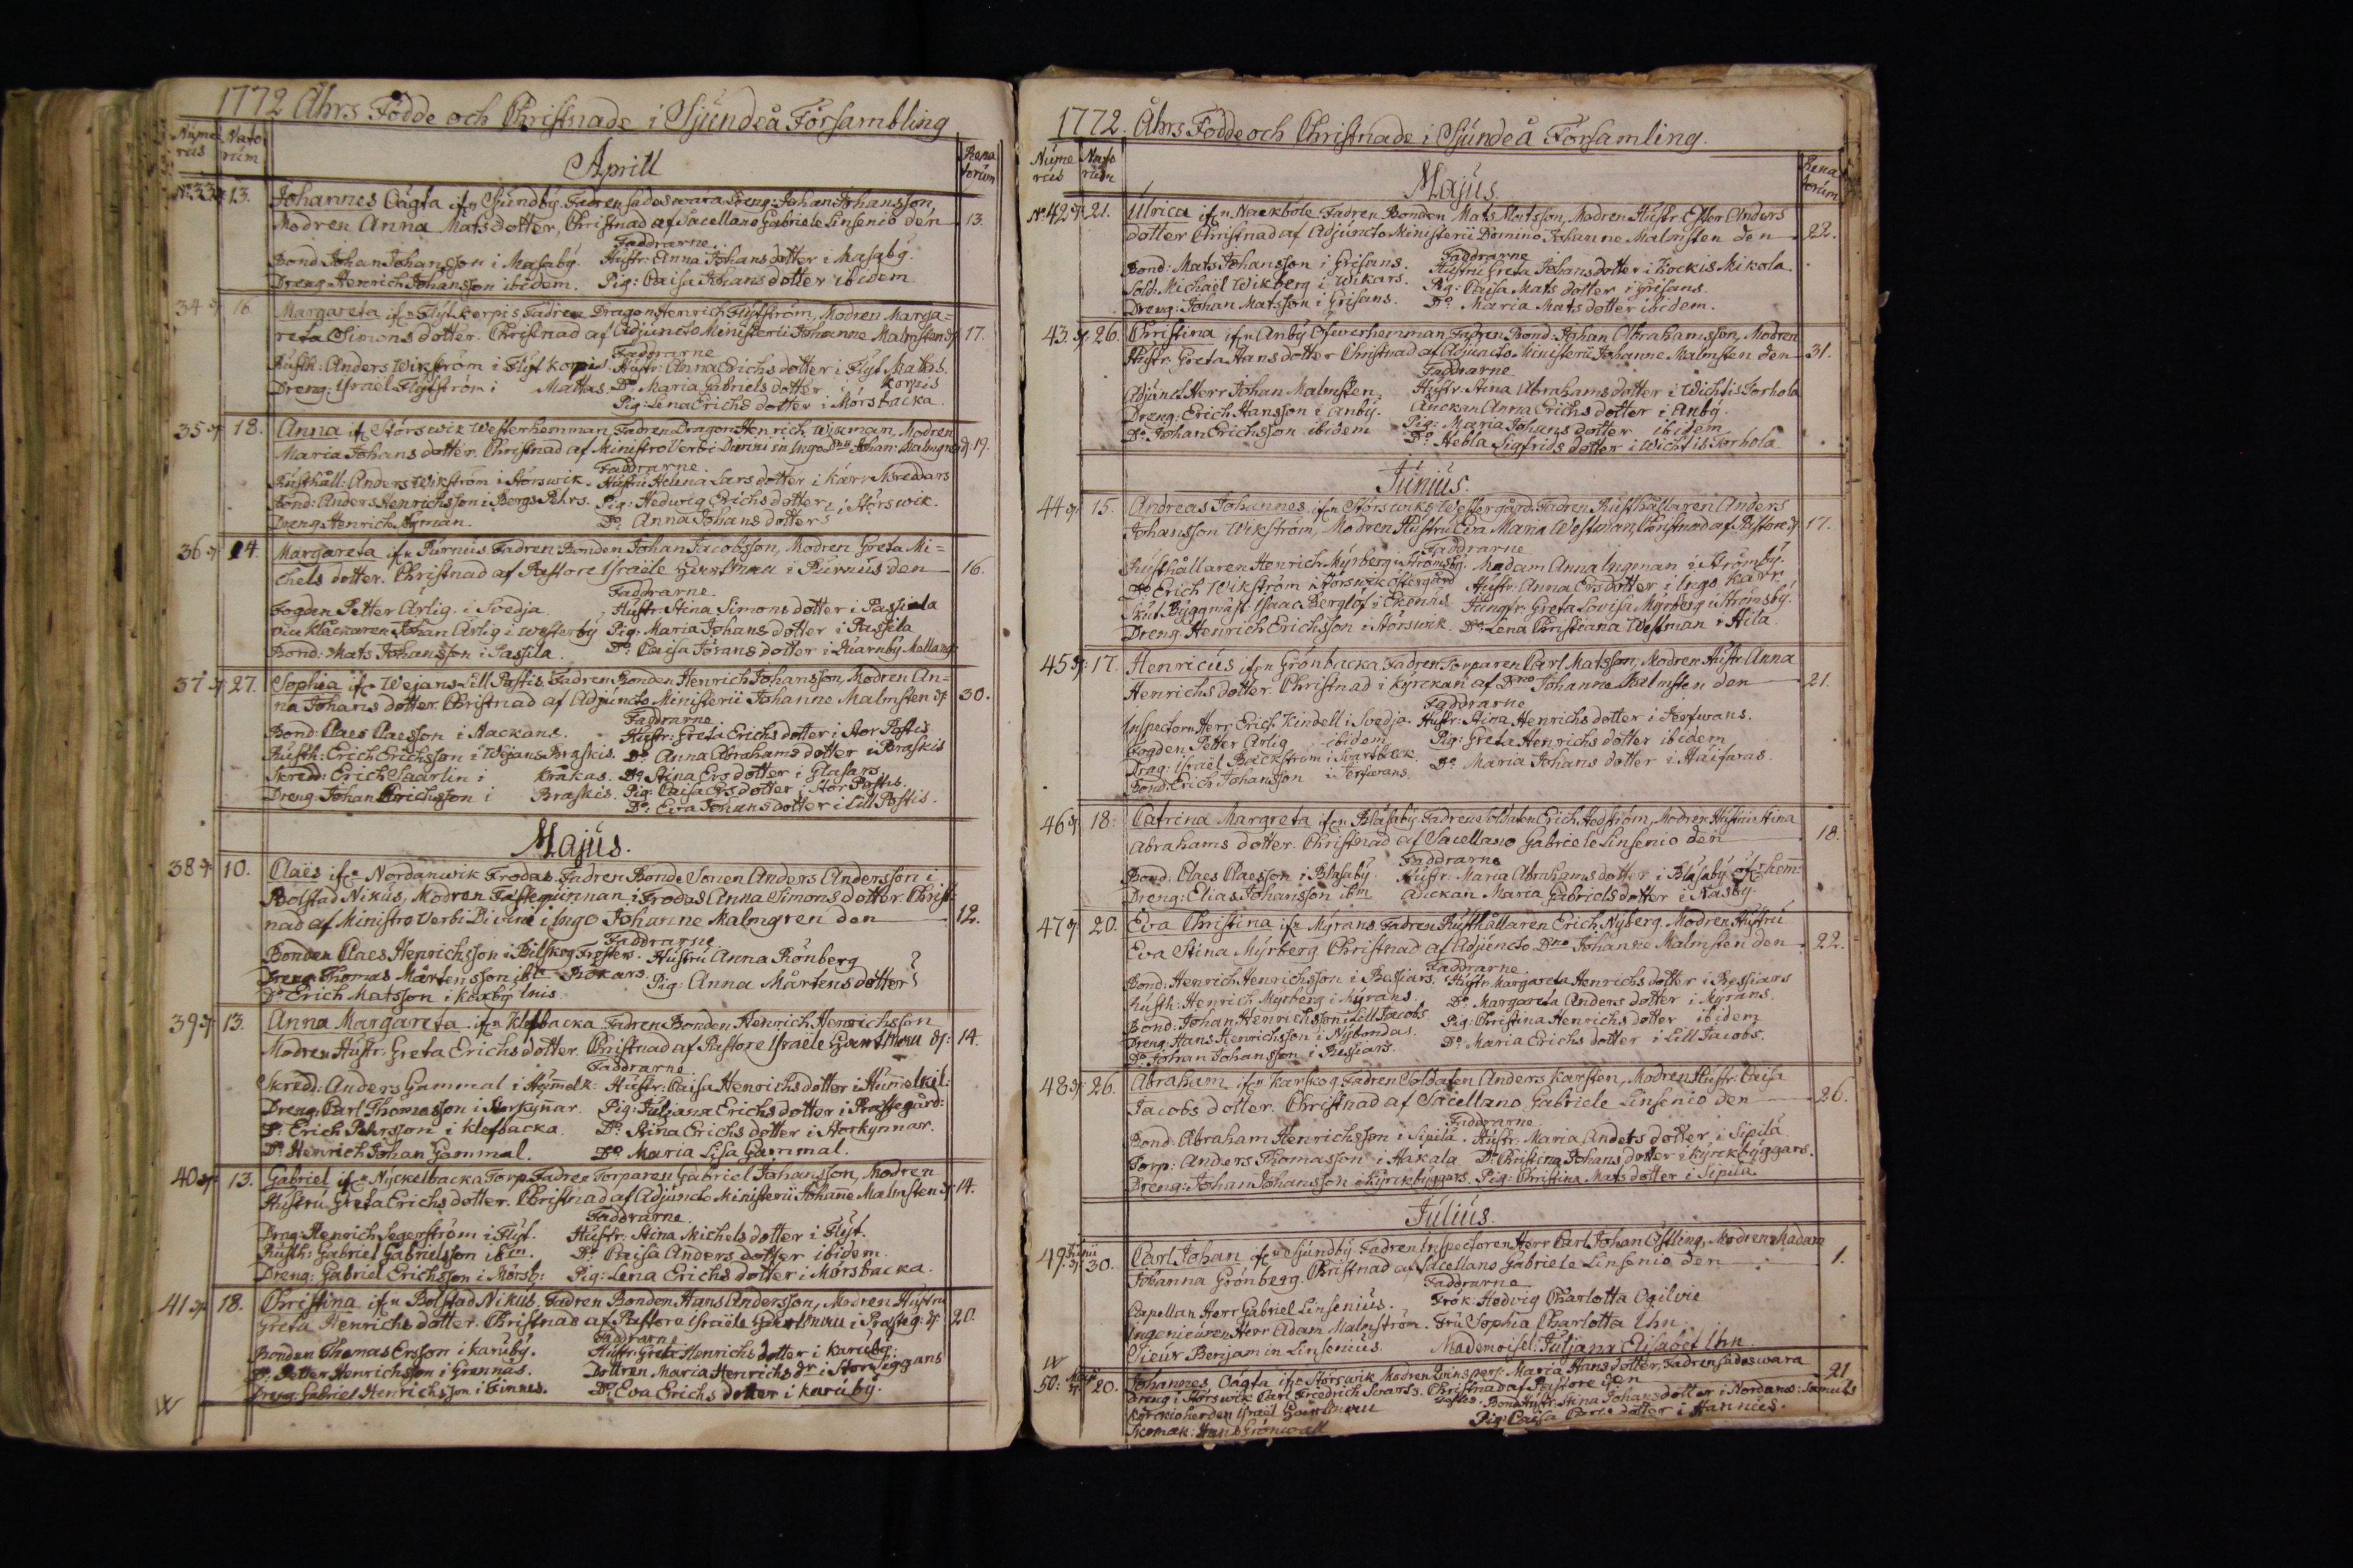 1772 Åhrs Födde och Christnade i Sjundeå Försambling
Nume rus Nato rum Rena torum
Aprill
No 33 d 13. Johannes Oägta ifrn Sjundby. Fadren sades wara Dreng: Johan Johansson,
Modren Anna Mats dotter, Christnad af Sacellano Gabriele Linsenio den 13.
Faddrarne.
Bond Johan Johansson i Masaby. Hustr: Anna Johans dotter i Masaby.
Dreng Henrich Johansson ibidem. Pig: Caisa Johans dotter ibidem
34 d 16. Margareta ifrn Flyt korpis Fadren Dragon Henrich Flytström, Modren Marga=
reta Simons dotter. Christnad af Adjuncto Ministerii Johanne Malmsten d 17.
Faddrarne
Rusth: Anders Wikström i Flyt korpis. Hustr: Anna Erichs dotter i Flyt Mattas.
Dreng: Israel Flytström i Mattas. Do Maria Gabriels dotter i korpis
Pig: Lena Erichs dotter i Mörsbacka.
35 d 18. Anna if Störswik Westerhemman Fadren Dragon Henrich Wikman, Modren
Maria Johans dotter. Christnad af Ministro Verbi Divini in Ingo Dno Johan: Malmgren d. 19.
Faddrarne.
Rusthåll: Anders Wikström i Störswik. Hustru Helena Lars dotter i Kärr Skreddars
Bond: Anders Henrichsson i Bergs Pehrs. Pig: Hedwig Erichs dotter i Störswik.
Dreng Henrich Nyman. Do Anna Johans dotter
36 d 14. Margareta ifrn Purnus Fadren Bonden Johan Jacobsson, Modren Greta Mi=
chels dotter. Christnad af Pastore Israele i Purnus den 16.
Faddrarne.
Fogden Petter Ärlig i Svedja. Hustr: Stina Simons dotter i Passila
vice klåckaren Johan Ärlig i Westerby Pig: Maria Johans dotter i Passila
Bond: Mats Johansson i Passila. Do: Caisa Jörans dotter i Quarnby Mellang:
37 d 27. Sophia ifrn Wejans Lill Pastis Fadren Bonden Henrich Johansson, Modren An=
na Johans dotter. Christnad af Adjuncto Ministerii Johanne Malmsten d 30.
Faddrarne
Bond: Claes Claesson i Nackans. Hustr: Greta Erichs dotter i Stor Pastis
Rusth: Erich Erichsson i Wejans Braskis. Do Anna Abrahams dotter i Braskis
Skredd: Erich Saarlin i kråkas. Do Stina Ers dotter i Glasars
Dreng: Johan Erichsson i Braskis. Pig: Caisa Ers dotter i Stor Pastis.
Do: Eva Johans dotter i Lill Pastis.
Majus.
38 d 10. Claës ifrn Nordanwik Frodas Fadren Bonde Sonen Anders Andersson i
Bölstad Nikus, Modren Fästequinnan i Frodas Anna Simons dotter. Christ=
nad af Ministro Verbi Divini i Ingo Johanne Malmgren den 12.
Faddrarne
Bonden Claes Henrichsson i Bilskog Frosters. Hustru Anna Rönberg
Dreng: Thomas Mårtensson i Rokars. Pig: Anna Mårtens dotter
Do Erich Matsson i koxby Inis
39 d 13. Anna Margareta ifrn Klefbacka Fadren Bonden Henrich Henrichsson
Modren Hustr: Greta Erichs dotter. Christnad af Pastore Israele d: 14.
Faddrarne
Skredd: Anders Gammal i Humelk: Hustr: Caisa Henrichs dotter i Humelkil:
Dreng: Carl Thomasson i Storkynnar. Pig: Juliana Erichs dotter i Prästegård:
Do: Erich Pehrsson i klefbacka. Do: Stina Erichs dotter i Storkynnar.
Do: Henrich Johan Gammal. Do Maria Lisa Gammal.
40 d 13. Gabriel ifrn Nyckelbacka Torp Fadren Torparen Gabriel Johansson, Modren
Hustru Greta Erichs dotter. Christnad af Adjuncto Ministerii Johane Malmsten d 14.
Faddrarne
Drag: Henrich Segerström i Flyt. Hustr: Stina Michels dotter i Flyt.
Rusth: Gabriel Gabrielsson ibm. Do: Caisa Anders dotter ibidem.
Dreng: Gabriel Erichsson i Mörsb: Pig: Lena Erichs dotter i Mörsbacka.
41 d 18. Christina ifrn Bölstad Nikus. Fadren Bonden Hans Andersson, Modren Hustru
Greta Henrichs dotter. Christnad af Pastore Israele i Prästeg: d 20.
Faddrarne
Bonden Thomas Ersson i karuby. Hustr: Greta Henrichs dotter i karuby.
Do: Petter Henrichsson i Grennäs. Dottren Maria Henrichs dr i Stor Siggans
Dreng: Gabriel Henrichsson i Finnes. Do: Eva Erichs dotter i karuby.
1772. Åhrs Födde och Christnade i Sjundeå Församling.
Nume rus Nato rum Rena torum
Majus.
No 42 d 21. Ulrica ifrn Naekböle Fadren Bonden Mats Matsson, Modren Hustr: Ester Anders
dotter Christnad af Adjuncto Ministerii Domino Johanne Malmsten den 22.
Faddrarne
Bond: Mats Johansson i Grisans. Hustru Greta Johans dotter i Kockis Mikala
Sold: Michaël Wikberg i Wikars. Pig: Caisa Mats dotter i Grisans.
Dreng: Johan Matsson i Grisans. Do Maria Mats dotter ibidem.
43 d 26. Christina ifrn Anby Öfwerhemman Fadren Bond: Johan Abrahamsson, Modren
Hustr: Greta Hans dotter Christnad af Adjuncto Ministerii Johanne Malmsten den 31.
Faddrarne
Adjunct: Herr Johan Malmsten, Hustr: Stina Abrahams dotter i Wichtis Torhola
Dreng: Erich Hansson i Anby. Änckan Anna Erichs dotter i Anby.
Do: Johan Erichsson ibidem Pig: Maria Johans dotter ibidem
Do Hebla Sigfrids dotter i Wichtis Torhola.
Junius.
44 d 15. Andreas Johannes ifrn Störswiks Westergård Fadren Rusthållaren Anders
Johansson Wikström, Modren Hustru Eva Maria Westman, Christnad af Pastore d 17.
Faddrarne
Rusthållaren Henrich Myrberg i Strömsby. Madam Anna Ingman i Strömby.
Do Erich Wikström i Störswik Östergård Hustr: Anna Ers dotter i Ingo Kärr
Skut Byggmäst: Isaac Berglöf i Ekenäs. Jungfr: Greta Lovisa Myrberg i Strömsby.
Dreng: Henrich Erichsson i Störswik. Do: Lena Christiana Westman i Stila.
45 d: 17. Henricus ifrn Grönbacka Fadren Torparen Carl Matsson, Modren Hustr: Anna
Henrichs dotter. Christnad i kyrckan af Dno Johanne Malmsten den 21.
Faddrarne
Inspectorn Herr Erich Kindell i Svedja. Hustr: Stina Henrichs dotter i Jerfwans.
Fogden Petter Ärlig ibidem Pig: Greta Henrichs dotter ibidem
Drag: Israel Bäckström i Svartbeck. Do Maria Johans dotter i Huifvras.
Bond: Erich Johansson i Jerfwans.
46 d 18. Catrina Margreta ifrn Blåsaby Fadren Soldaten Erich Hedström, Modren Hustru Stina
Abrahams dotter. Christnad af Sacellano Gabriele Linsenio den 18.
Faddrarne
Bond: Claes Claesson i Blåsaby. Hustr: Maria Abrahams dotter i Blåsaby öfr: hem:
Dreng: Elias Johansson ibm Änckan Maria Gabriels dotter i Näsby.
47 d 20. Eva Christina ifrn Myrans Fadren Rusthållaren Erich Nyberg, Modren Hustru
Eva Stina Myrberg. Christnad af Adjuncto Dno Johanne Malmsten den 22.
Faddrarne
Bond: Henrich Henrichsson i Bessiars. Hustr: Margareta Henrichs dotter i Bessiars
Rusth: Henrich Myrberg i Myrans. Do: Margareta Anders dotter i Myrans.
Bond: Johan Henrichsson i Lill Jacobs Pig: Christina Henrichs dotter ibidem
Dreng: Hans Henrichsson i Nybondas. Do: Maria Erichs dotter i Lill Jacobs.
Do Johan Johansson i Bessiars.
48 d 26. Abraham ifrn Karskog Fadren Soldaten Anders Karsten, Modren Hustr: Caisa
Jacobs dotter. Christnad af Sacellano Gabriele Linsenio den 26.
Faddrarne
Bond: Abraham Henrichsson i Sipilä. Hustr: Maria Anders dotter i Sipilä
Torp: Anders Thomasson i Hakala Do Christina Johans dotter i kyrckbyggars.
Dreng: Johan Johansson i Kyrckbyggars. Pig: Christina Mats dotter i Sipila.
Julius.
49. Junii d 30. Carl Johan ifrn Sjundby. Fadren Inspectoren Herr Carl Johan Östling, Modren Madame
Johanna Grönberg. Christnad af Sacellano Gabriele Linsenio den 1.
Faddrarne
Capellan Herr Gabriel Linsenius. Frök: Hedvig Charlotta Ogilvie
Ingenieuren Herr Adam Malmström. Fru Sophia Charlotta Uhn.
Sieur Benjamin Linsenius. Mademoisel: Juliana Elisabet Uhn.
50: Maji d 20. Johannes Oägta ifrn Störswik Modren Maria Hans dotter, Fadren sades wara 21
Dreng i Störswik Carl Friedrich Svartz. Christnad af Pastore den
Kyrckioherden Israel Bond: Hustr: Stina Johans dotter i Nordans: Samuls
Hans Grönwall Pig: Caisa dotter i Hannus.